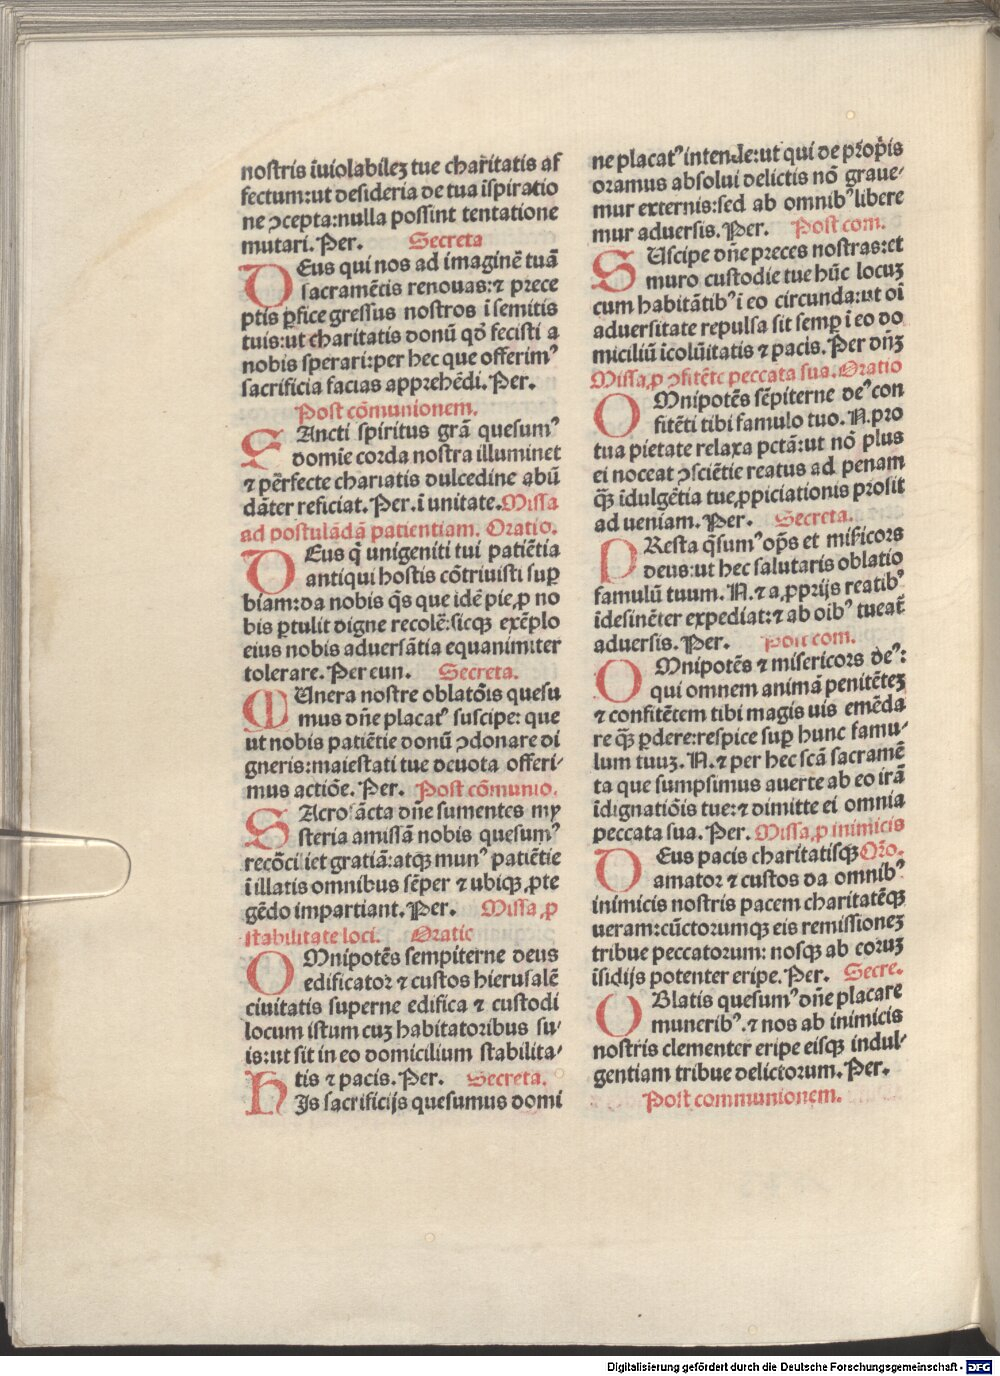 nostris īuiolabileꝫ tue char̄itatis af
fectum:ut desideria de tua īspiratio
ne ꝯcepta:nulla possint tentatione
mutari. Per. Secreta
DEus qui nos ad imaginē tuā
sacramētis renouas:⁊ prece
ptis ꝑfice gressus nostros ī semitis
tuis:ut charitatis donū qd̄ fecisti a
nobis sperari:per hec que offerimꝰ
sacrificia facias apprehēdi. Per.
Post cōmunionem.
SAncti spiritus grā quesumꝰ
domīe corda nostra illuminet
⁊ pēr̄fecte charitatis dulcedine abū
dāter reficiat. Per. ī unitate. Missa
ad postulādā patientiam. Oratio.
DEus q̄ unigeniti tui patiētia
antiqui hostis cōtriuisti suꝑ
biam:da nobis q̄s que idē pie ꝓ no
bis ꝑtulit digne recolē:sicqꝫ exēplo
eius nobis aduersātia equanimiter
tolerare. Per eun. Secreta.
MUnera nostre oblatōis quesu
mus dn̄e placatꝰ suscipe: que
ut nobis patiētie donū ꝯdonare di
gneris:maiestati tue deuota offeri-
mus actiōe. Per. Post cōmunio.
SAcrosācta dn̄e sumentes my
steria amissā nobis quesumꝰ
recōciliet gratiā:atqꝫ munꝰ patiētie
ī illatis omnibus sēper ⁊ ubiqꝫ ꝓte
gēdo impartiant. Per. Missa ꝓ
stabilitate loci. Oratio
OMnipotēs sempiterne deus
edificator ⁊ custos hierusalē
ciuitatis superne edifica ⁊ custodi
locum istum cuꝫ habitatoribus su-
is:ut sit in eo domicilium stabilita-
tis ⁊ pacis. Per. Secreta.
HIs sacrificijs quesumus domi
ne placatꝰ intende:ut qui de prop̄is
oramus absolui delictis nō graue-
mur externis:sed ab omnibꝰ libere
mur aduersis. Per. Post com.
SUscipe dn̄e preces nostras:et
muro custodie tue hūc locuꝫ
cum habitātibꝰ ī eo circunda:ut oī
aduersitate repulsa sit semꝑ ī eo do
miciliū īcolūitatis ⁊ pacis. Per dn̄ꝫ
Missa ꝓ ꝯfitēte peccata sua. Oratio
OMnipotēs sēpiterne deꝰ con
fitēti tibi famulo tuo. N. pro
tua pietate relaxa pctā:ut nō plus
ei noceat ꝯsciētie reatus ad penam
qꝫ̄ īdulgētia tue ꝓpiciationis prosit
ad ueniam. Per. Secreta.
PResta q̄sumꝰ op̄s et misericors
deus:ut hec salutaris oblatio
famulū tuum. N. ⁊ a ꝓprijs reatibꝰ
īdesinēter expediat:⁊ ab oībꝰ tueat̄
aduersis. Per. Post com.
OMnipotēs ⁊ misericors deꝰ:
qui omnem animā penitēteꝫ
⁊ confitētem tibi magis uis emēda
re qꝫ̄ ꝑdere:respice suꝑ hunc famu-
lum tuuꝫ. N. ⁊ per hec scā sacramē
ta que sumpsimus auerte ab eo irā
īdignatiōis tue:⁊ dimitte ei omnia
peccata sua. Per. Missa ꝓ inimicis
DEus pacis charitatisqꝫ Orō.
amator ⁊ custos da omnibꝰ
inimicis nostris pacem charitatēqꝫ
ueram:cūctorumqꝫ eis remissioneꝫ
tribue peccatorum: nosqꝫ ab coruꝫ
īsidijs potenter eripe. Per. Secre.
OBlatis quesumꝰ dn̄e placare
muneribꝰ. ⁊ nos ab inimicis
nostris clementer eripe eisqꝫ indul-
gentiam tribue delictorum. Per.
Post communionem.
Digitalisierung gefördert durch die Deutsche Forschungsgemeinschaft - DFG